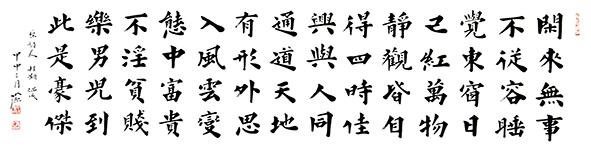 閑來無事
不從容睡
覺東窗日
已紅萬物
靜觀皆自
得四時佳
興與人同
通道天地
有形外思
入風雲變
態中富貴
不淫貧賤
樂男兒到
此是豪傑
宋詩人程顥偶成
甲申